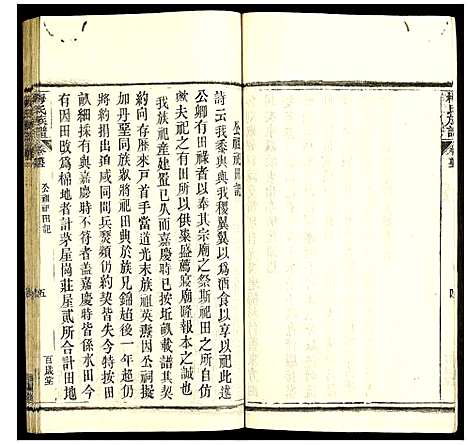 公祠祀田記
詩云我黍與與我稷翼翼以為酒食以享以祀此述
公卿有田祿者以奉其宗廟之祭斯祀田之所自仿
歟夫祀之有田所以供粢盛薦寢廟隆報本之誠也
我族祀產建置已久而嘉慶時已按坵畝載譜其契
約向存歷來戶首手當道光末族祖英齋因公祠擬
加丹堊同族眾將祀田典於族兄錦超後一年超仍
將約捐出迨咸同間兵燹頻仍約契皆失今特按田
畝細採有與嘉慶時不符者蓋嘉慶時皆係水田今
有因田改為棉地者計茅屋崗莊屋貳所合計田地
公祠祀田記
五
百歲堂